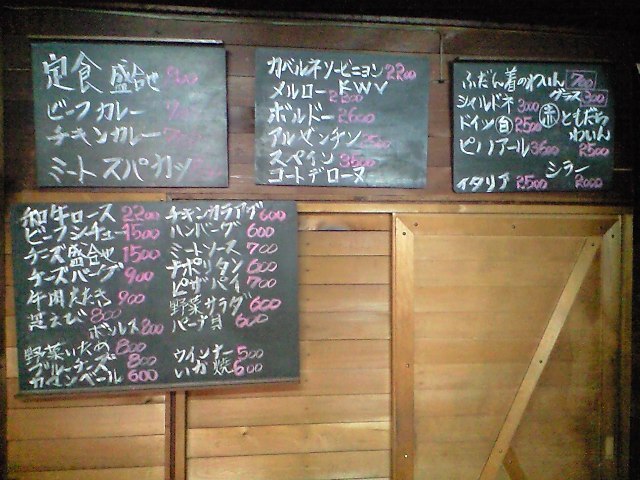 定食 盛合せ 900
ビーフカレー
チキンカレー
ミートスパカツ
カベルネソービニヨン 2200
メルロー KWV
2200
ボルドー 2600
アルゼンチン 2500
スペイン 3500
コートデローヌ
ふだん着のわいん 700
グラス 300
シャルドネ 3000
ドイツ 白 2500
赤 ともだち
わいん
2500
ピノノアール 3600
シラー
2000
イタリア 2500
和牛ロース 2200
ビーフシチュー 1500
チーズ盛合せ 1500
チーズバーグ 900
牛肉たたき 900
芝えび 800
ボルレス 800
野菜いため 800
ブルーチーズ 800
カマンベール 600
チキンカラアゲ 600
ハンバーグ 600
ミートソース 700
ナポリタン 600
ピザパイ 700
野菜サラダ 600
バーナヨ 600
ウインナー 500
いか焼 600